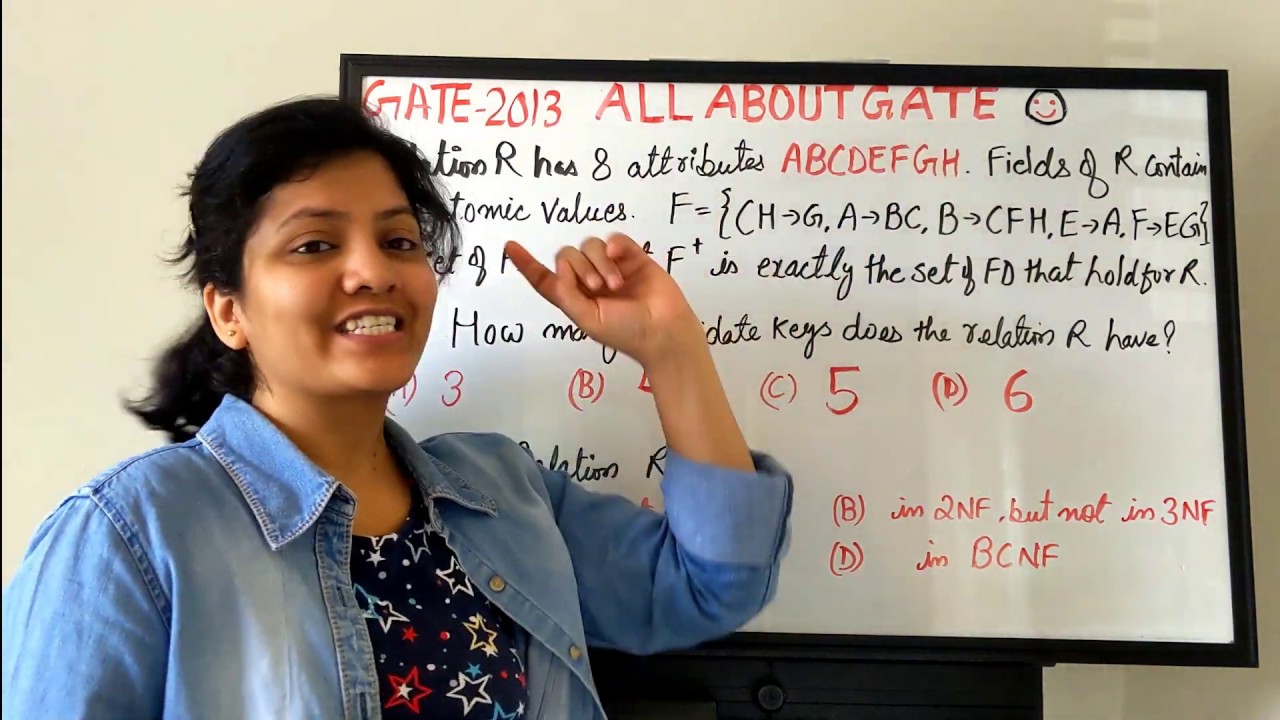 GATE-2013 ALL ABOUT GATE
R has 8 attributes ABCDEFGH. Fields of R contain
Values. F={CH→G, A→BC, B→CFH, E→A, F→EG}
of F⁺ is exactly the set of FD that hold for R.
How many Keys does the relation R have?
3 (B) (C) 5 (D) 6
Relation R
(B) in 2NF, but not in 3NF
(D) in BCNF